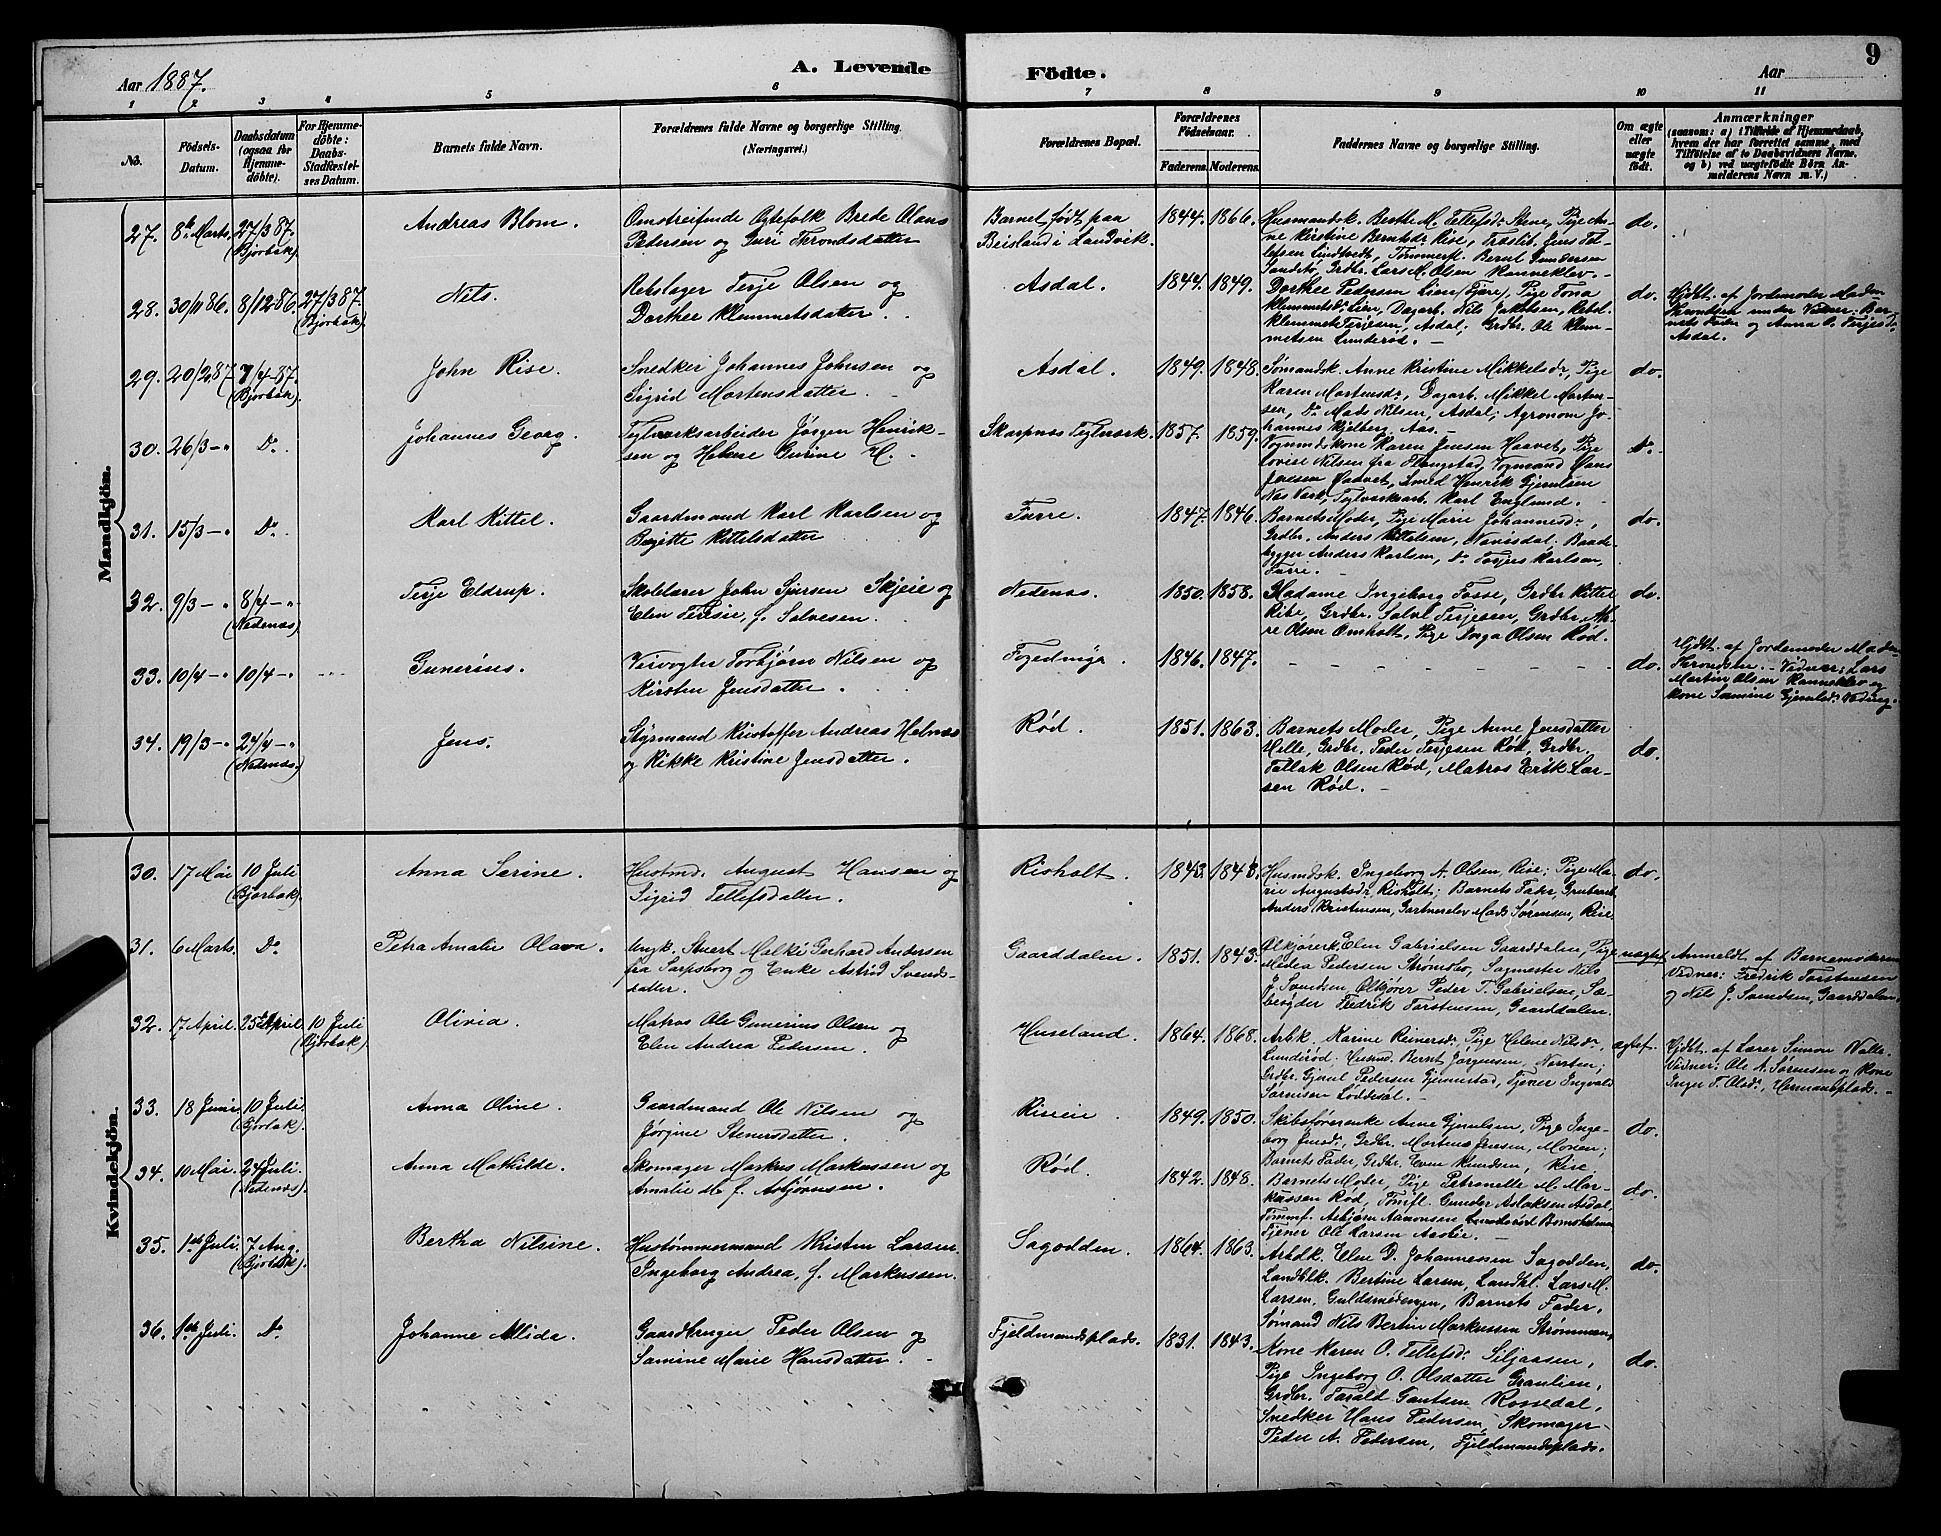 9
Aar 1887.
A. Levende Födte.
Aar
1 2 3 4 5 6 7 8 9 10 11
No.
Födsels-
Datum.
Daabsdatum
(ogsaa for
Hjemme-
döbte).
For Hjemme-
döbte:
Daabs-
Stadfæstel-
ses Datum.
Barnets fulde Navn.
Forældrenes fulde Navne og borgerlige Stilling.
(Næringsvei.)
Forældrenes Bopæl.
Forældrenes
Födselsaar.
Faderens. Moderens.
Faddernes Navne og borgerlige Stilling.
Om ægte
eller
uægte
födt.
Anmærkninger
(saasom: a) i Tilfælde af Hjemmedaab,
hvem der har forrettet samme, med
Tilföielse af to Daabsvidners Navne,
og b) ved uægtefödte Börn An-
melderens Navn m. V.)
Mandkjön.
27. 8de Marts. 27/3 87. (Bjorbæk) Andreas Blom.
Omstreifende Ægtefolk Brede Olaus
Pedersen og Guri Throndsdatter
Barnet født paa
Beisland i Landvik.
1844. 1866.
Husmandsk. Berthe M. Tellefsdr. Stene, Pige An-
ne Kirstine Berntsdr. Rise, Jens Tel-
lefsen Lindtvedt, Tømmerk. Bernt Gundersen
Grdbr. Lars M. Olsen Ranneklev.
do.
28. 30/11 86. 8/12 86. 27/3 87. (Bjorbæk) Nils.
Rebslager Terje Olsen og
Dorthea Klemmetsdatter.
Asdal. 1844. 1849.
Dorthea Pedersen Lien (Fjære), Pige Tona
Klemmetsdr. Lien, Dagarb. Nils Jakobsen, Rebsl.
Klemmet Terjesen, Asdal, Grdbr. Ole Klem-
metsen Lunderød.
do.
Hjdbt. af Jordemoder Maren
Throndsen under Vidner: Bar-
nets Fader og Anna O. Terjesdr.
Asdal.
29. 20/2 87. 7/4 87. (Bjorbæk). John Rise.
Snedker Johannes Johnsen og
Sigrid Mortensdatter.
Asdal. 1849. 1848.
Sømandsk. Anne Kristine Mikkelsdr., Pige
Karen Mortensdr., Dagarb. Mikkel Morten-
sen, Do. Mads Nilsen, Asdal; Agronom Jo-
hannes Kjelberg, Aas.
do.
30. 26/3 - " Do. Johannes Georg.
Teglværksarbeider Jörgen Henrik-
sen og Helene Gurine H.
Skarpnæs Teglværk. 1857. 1859.
Vognmdskone Karen Jensen Haavet, Pige
Lovise Nilsen fra Flangstad, Vognmand Hans
Jensen Haavet, Smed Henrik Gjerulsen
Næs Værk, Teglværksarb. Karl Englund.
Do.
31. 15/3 - " Do. Karl Kittel.
Gaardmand Karl Karlsen og
Birgitte Kittelsdatter
Færre. 1847. 1846.
Barnets Moder, Pige Marie Johannesdr.,
Grdbr. Anders Kittelsen, Navisdal. Baad-
bygger Anders Karlsen, Do. Torjer Karlsen,
Færre.
do.
32. 9/3 - " 8/4 - " (Nedenæs) Terje Eldrup.
Skolelærer John Sjursen Skjeie og
Elen Teresie, f. Salvesen.
Nedenæs. 1850. 1858.
Madame Ingeborg Fosse, Grdbr. Kittel
Ribe, Grdbr. Salve Terjesen, Grdbr. An-
re Olsen Omholt, Pige Inga Olsen Rød.
do.
33. 10/4 - " 10/4 - " Gunerius.
Veivogter Torbjørn Nilsen og
Kirsten Jensdatter.
Fogedmyr. 1846. 1847.
do.
Hjdbt. af Jordemoder Maren
Throndsen. Vidner: Lars
Martin Olsen Ranneklev og
Kone Samine Gjerulsdr.
34. 19/3 - " 24/4 - " (Nedenæs) Jens.
Styrmand Kristoffer Andreas Helnæs
og Rikke Kristine Jensdatter.
Rød. 1851. 1863.
Barnets Moder, Pige Anne Jensdatter
Helle, Grdbr. Peder Terjesen Rød, Grdbr.
Tallak Olsen Rød, Matros Erik Lar-
sen Rød.
do.
Kvindekjön.
30. 17 Mai 10 Juli (Bjorbæk). Anna Serine.
Hustmd. August Hansen og
Sigrid Tellefsdatter.
Risholt. 1843. 1848.
Husmdsk. Ingeborg A. Olsen, Rise; Pige Ma-
rie Augustsdr. Risholt; Barnets Fader, Grubearb.
Anders Kristensen, Gartnerelev Mads Sørensen, Rise.
do.
31. 6 Marts. Do. Petra Amalie Olava.
Ungk. Stuert Malki Gerhard Andersen
fra Sarpsborg og Enke Astrid Svends-
datter.
Gaarddalen. 1851. 1843.
Ølkjørerk. Elen Gabrielsen Gaarddalen, Pige
Medea Pedersen Strømsbo, Sagmester Nils
J. Svendsen, Ølkjører Peder T. Gabrielsen, Sø-
beryder Fredrik Torstensen, Gaarddalen.
uægtef.
Anmeldt af Barnemoderen
Vidner: Fredrik Torstensen
og Nils J. Svendsen, Gaarddalen.
32. 17 April. 25de April. 10 Juli (Bjorbæk). Olivia.
Matros Ole Gunerius Olsen og
Elen Andrea Pedersen.
Huseland. 1864. 1868.
Arbk. Karine Reinersdr., Pige Helene Nilsdr.,
Lunderød. Husmd. Bernt Jörgensen, Norsten;
Grdbr. Gjerul Pedersen Gjennestad, Tjener Ingvald
Sørensen Løddesøl.
ægtef.
Hjdbt. af Lærer Simon Valle.
Vidner: Ole A. Sørensen og Kone
Inger T. Olsdr., Hermansplads.
33. 18 Juni 10 Juli. (Bjorbæk). Anna Oline.
Gaardmand Ole Nilsen og
Jörgine Stenersdatter.
Riseeie. 1849. 1850.
Skibsførerenke Anne Gjerulsen, Pige Inge-
borg Jensdr., Grdbr. Mortens Jensen, Moren;
Barnets Fader, Grdbr. Even Knudsen, Rise.
do.
34. 10 Mai. 24 Juli. (Nedenæs). Anna Mathilde.
Skomager Markus Markussen og
Amalie M. f. Asbjørnsen.
Rød. 1842. 1848.
Barnets Moder, Pige Petronelle M. Mar-
kussen Rød, Tømfl. Gunder Aslaksen Asdal,
Tømmf. Asbjørn Aanonsen Bomsholmen
Tjener Ole Larsen Aasbie.
do.
35. 1ste Juli. 7 Aug. (Bjorbæk). Bertha Nilsine.
Hustømmermand Kristen Larsen.
Ingeborg Andrea, f. Markussen.
Sagodden. 1864. 1863.
Arbdk. Elen D. Johannessen Sagodden,
Landhlk. Bertine Larsen, Landhl. Lars M.
Larsen, Guldsmedengen, Barnets Fader,
Sømand Nils Bertin Markussen Strømmen.
do.
36. 1ste Juli. Do. Johanne Alida.
Gaardbruger Peder Olsen og
Samine Marie Hansdatter.
Fjeldmandsplads. 1831. 1843.
Kone Maren O. Tellefsdr. Siljaasen,
Pige Ingeborg O. Olsdatter Graulien,
Grdbr. Tarald Gautsen Rossedal,
Snedker Hans Pedersen, Skomager
Peder A. Pedersen, Fjeldmandsplads.
do.